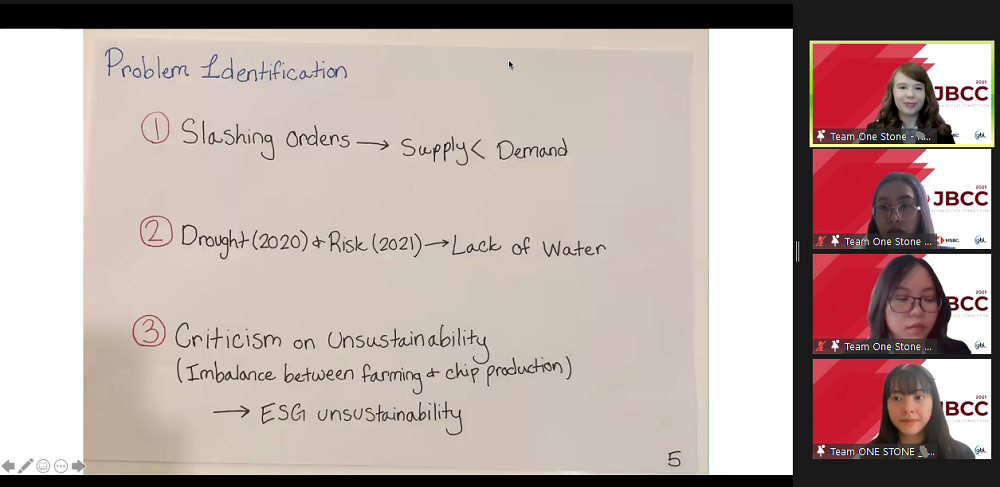 Problem Identification
① Slashing orders → Supply < Demand
② Drought (2020) & Risk (2021) → Lack of Water
③ Criticism on Unsustainability
(Imbalance between farming & chip production)
→ ESG unsustainability
5
2021
JBCC
Team One Stone - ...
2021
JBCC
HSBC
Team One Stone ...
2021
BCC
Team One Stone ...
2021
BCC
Team ONE STONE _...